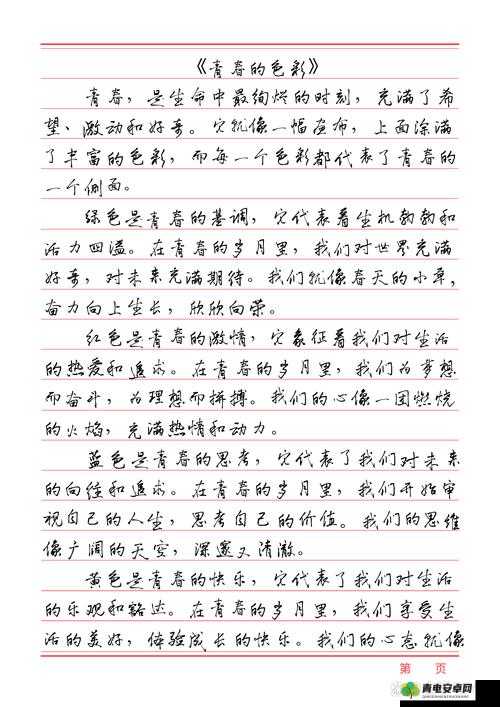 《青春的色彩》
青春，是生命中最绚烂的时刻，充满了希
望、激动和好奇。它就像一幅画布，上面涂满
了丰富的色彩，而每一个色彩都代表了青春的
一个侧面。
绿色是青春的基调，它代表着生机勃勃和
活力四溢。在青春的岁月里，我们对世界充满
好奇，对未来充满期待。我们就像春天的小草，
奋力向上生长，欣欣向荣。
红色是青春的激情，它象征着我们对生活
的热爱和追求。在青春的岁月里，我们为梦想
而奋斗，为理想而拼搏。我们的心像一团燃烧
的火焰，充满热情和动力。
蓝色是青春的思考，它代表了我们对未来
的向往和追求。在青春的岁月里，我们开始审
视自己的人生，思考自己的价值。我们的思维
像广阔的天空，深邃又清澈。
黄色是青春的快乐，它代表了我们对生活
的乐观和豁达。在青春的岁月里，我们享受生
活的美好，体验成长的快乐。我们的心态就像
第 页
青电安卓网